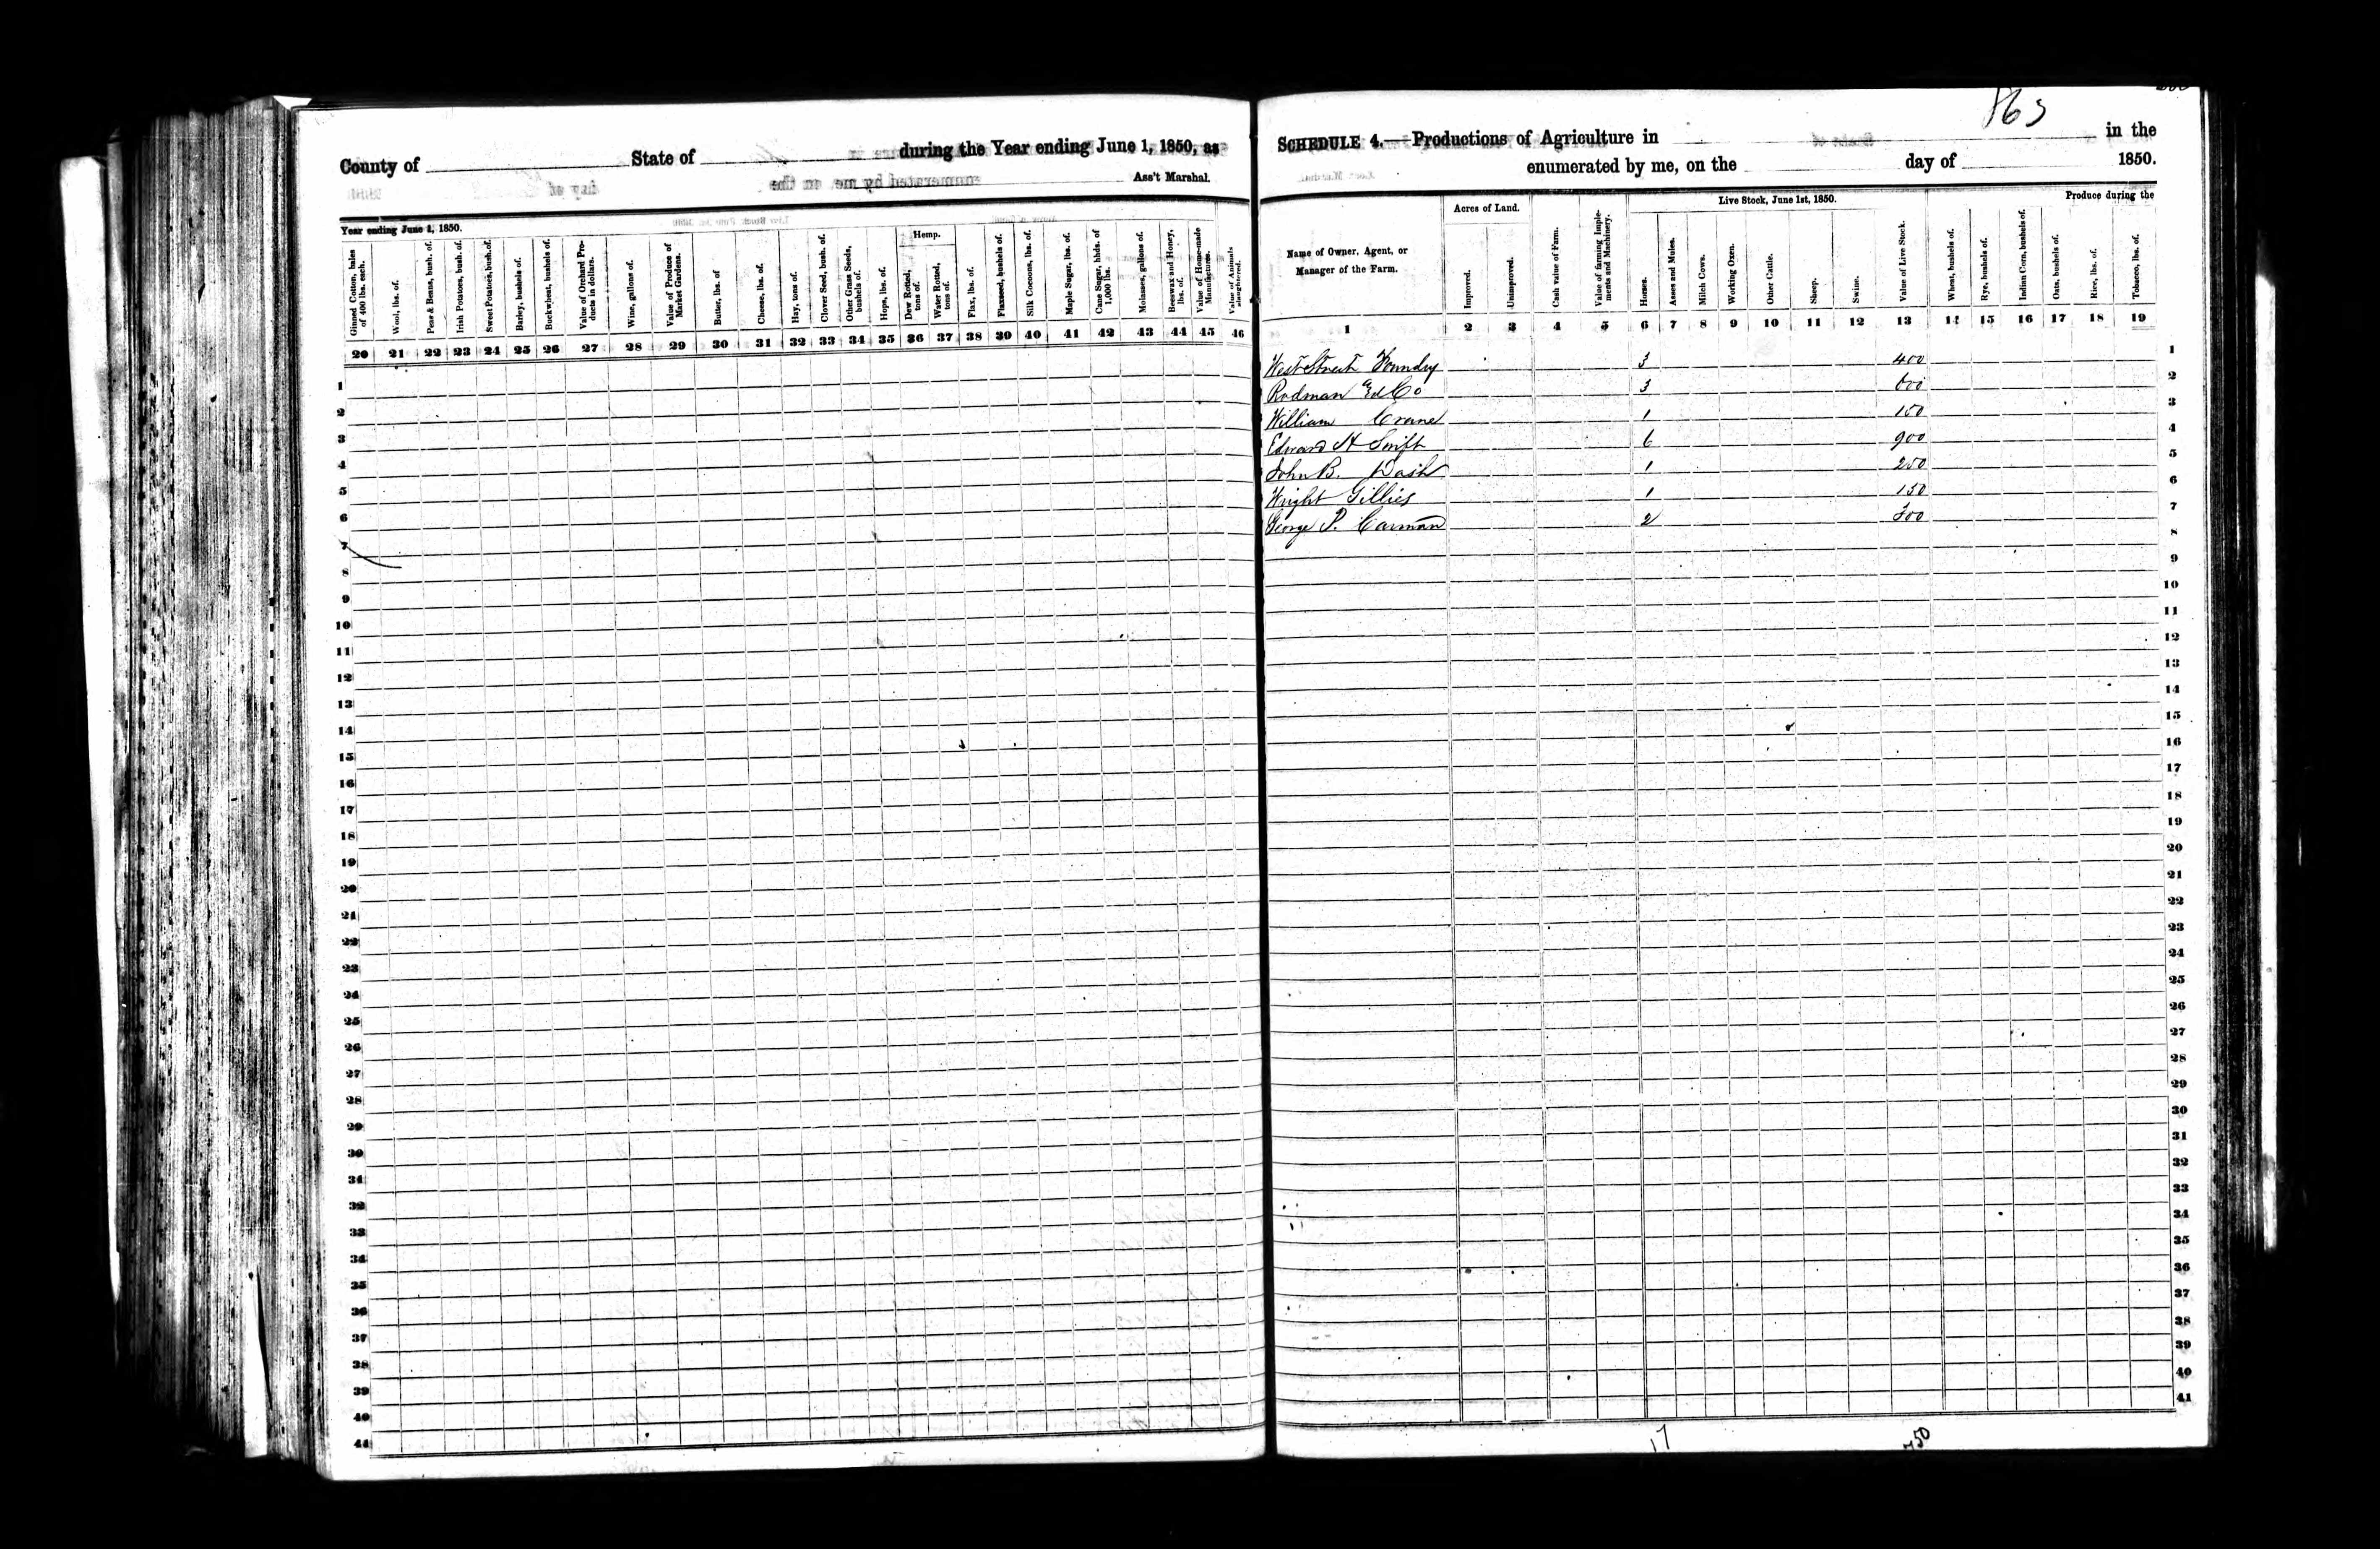 County of State of during the Year ending June 1, 1850, as
Ass't Marshal.
Year ending June 1, 1850.
Hemp.
Ginned Cotton, bales of 400 lbs. each.
Wool, lbs. of.
Peas & Beans, bush. of.
Irish Potatoes, bush. of.
Sweet Potatoes, bush. of.
Barley, bushels of.
Buckwheat, bushels of.
Value of Orchard Products in dollars.
Wine, gallons of.
Value of Produce of Market Gardens.
Butter, lbs. of
Cheese, lbs. of.
Hay, tons of.
Clover Seed, bush. of.
Other Grass Seeds, bushels of.
Hops, lbs. of.
Dew Rotted, tons of.
Water Rotted, tons of.
Flax, lbs. of.
Flaxseed, bushels of.
Silk Cocoons, lbs. of.
Maple Sugar, lbs. of.
Cane Sugar, hhds. of 1,000 lbs.
Molasses, gallons of.
Beeswax and Honey, lbs. of.
Value of Home-made Manufactures.
Value of Animals slaughtered.
20 21 22 23 24 25 26 27 28 29 30 31 32 33 34 35 36 37 38 39 40 41 42 43 44 45 46
1
2
3
4
5
6
7
8
9
10
11
12
13
14
15
16
17
18
19
20
21
22
23
24
25
26
27
28
29
30
31
32
33
34
35
36
37
38
39
40
41
SCHEDULE 4.—Productions of Agriculture in in the
enumerated by me, on the day of 1850.
Name of Owner, Agent, or Manager of the Farm.
Acres of Land.
Improved.
Unimproved.
Cash value of Farm.
Value of farming Implements and Machinery.
Live Stock, June 1st, 1850.
Horses.
Asses and Mules.
Milch Cows.
Working Oxen.
Other Cattle.
Sheep.
Swine.
Value of Live Stock.
Produce during the
Wheat, bushels of.
Rye, bushels of.
Indian Corn, bushels of.
Oats, bushels of.
Rice, lbs. of.
Tobacco, lbs. of.
1 2 3 4 5 6 7 8 9 10 11 12 13 14 15 16 17 18 19
West Street Foundry 3 400 1
Rodman & Co 3 600 2
William Crane 1 150 3
Edward H Swift 6 900 4
John B. Dash 1 250 5
Wright Gillies 1 150 6
George P. Carman 2 300 7
8
9
10
11
12
13
14
15
16
17
18
19
20
21
22
23
24
25
26
27
28
29
30
31
32
33
34
35
36
37
38
39
40
41
17